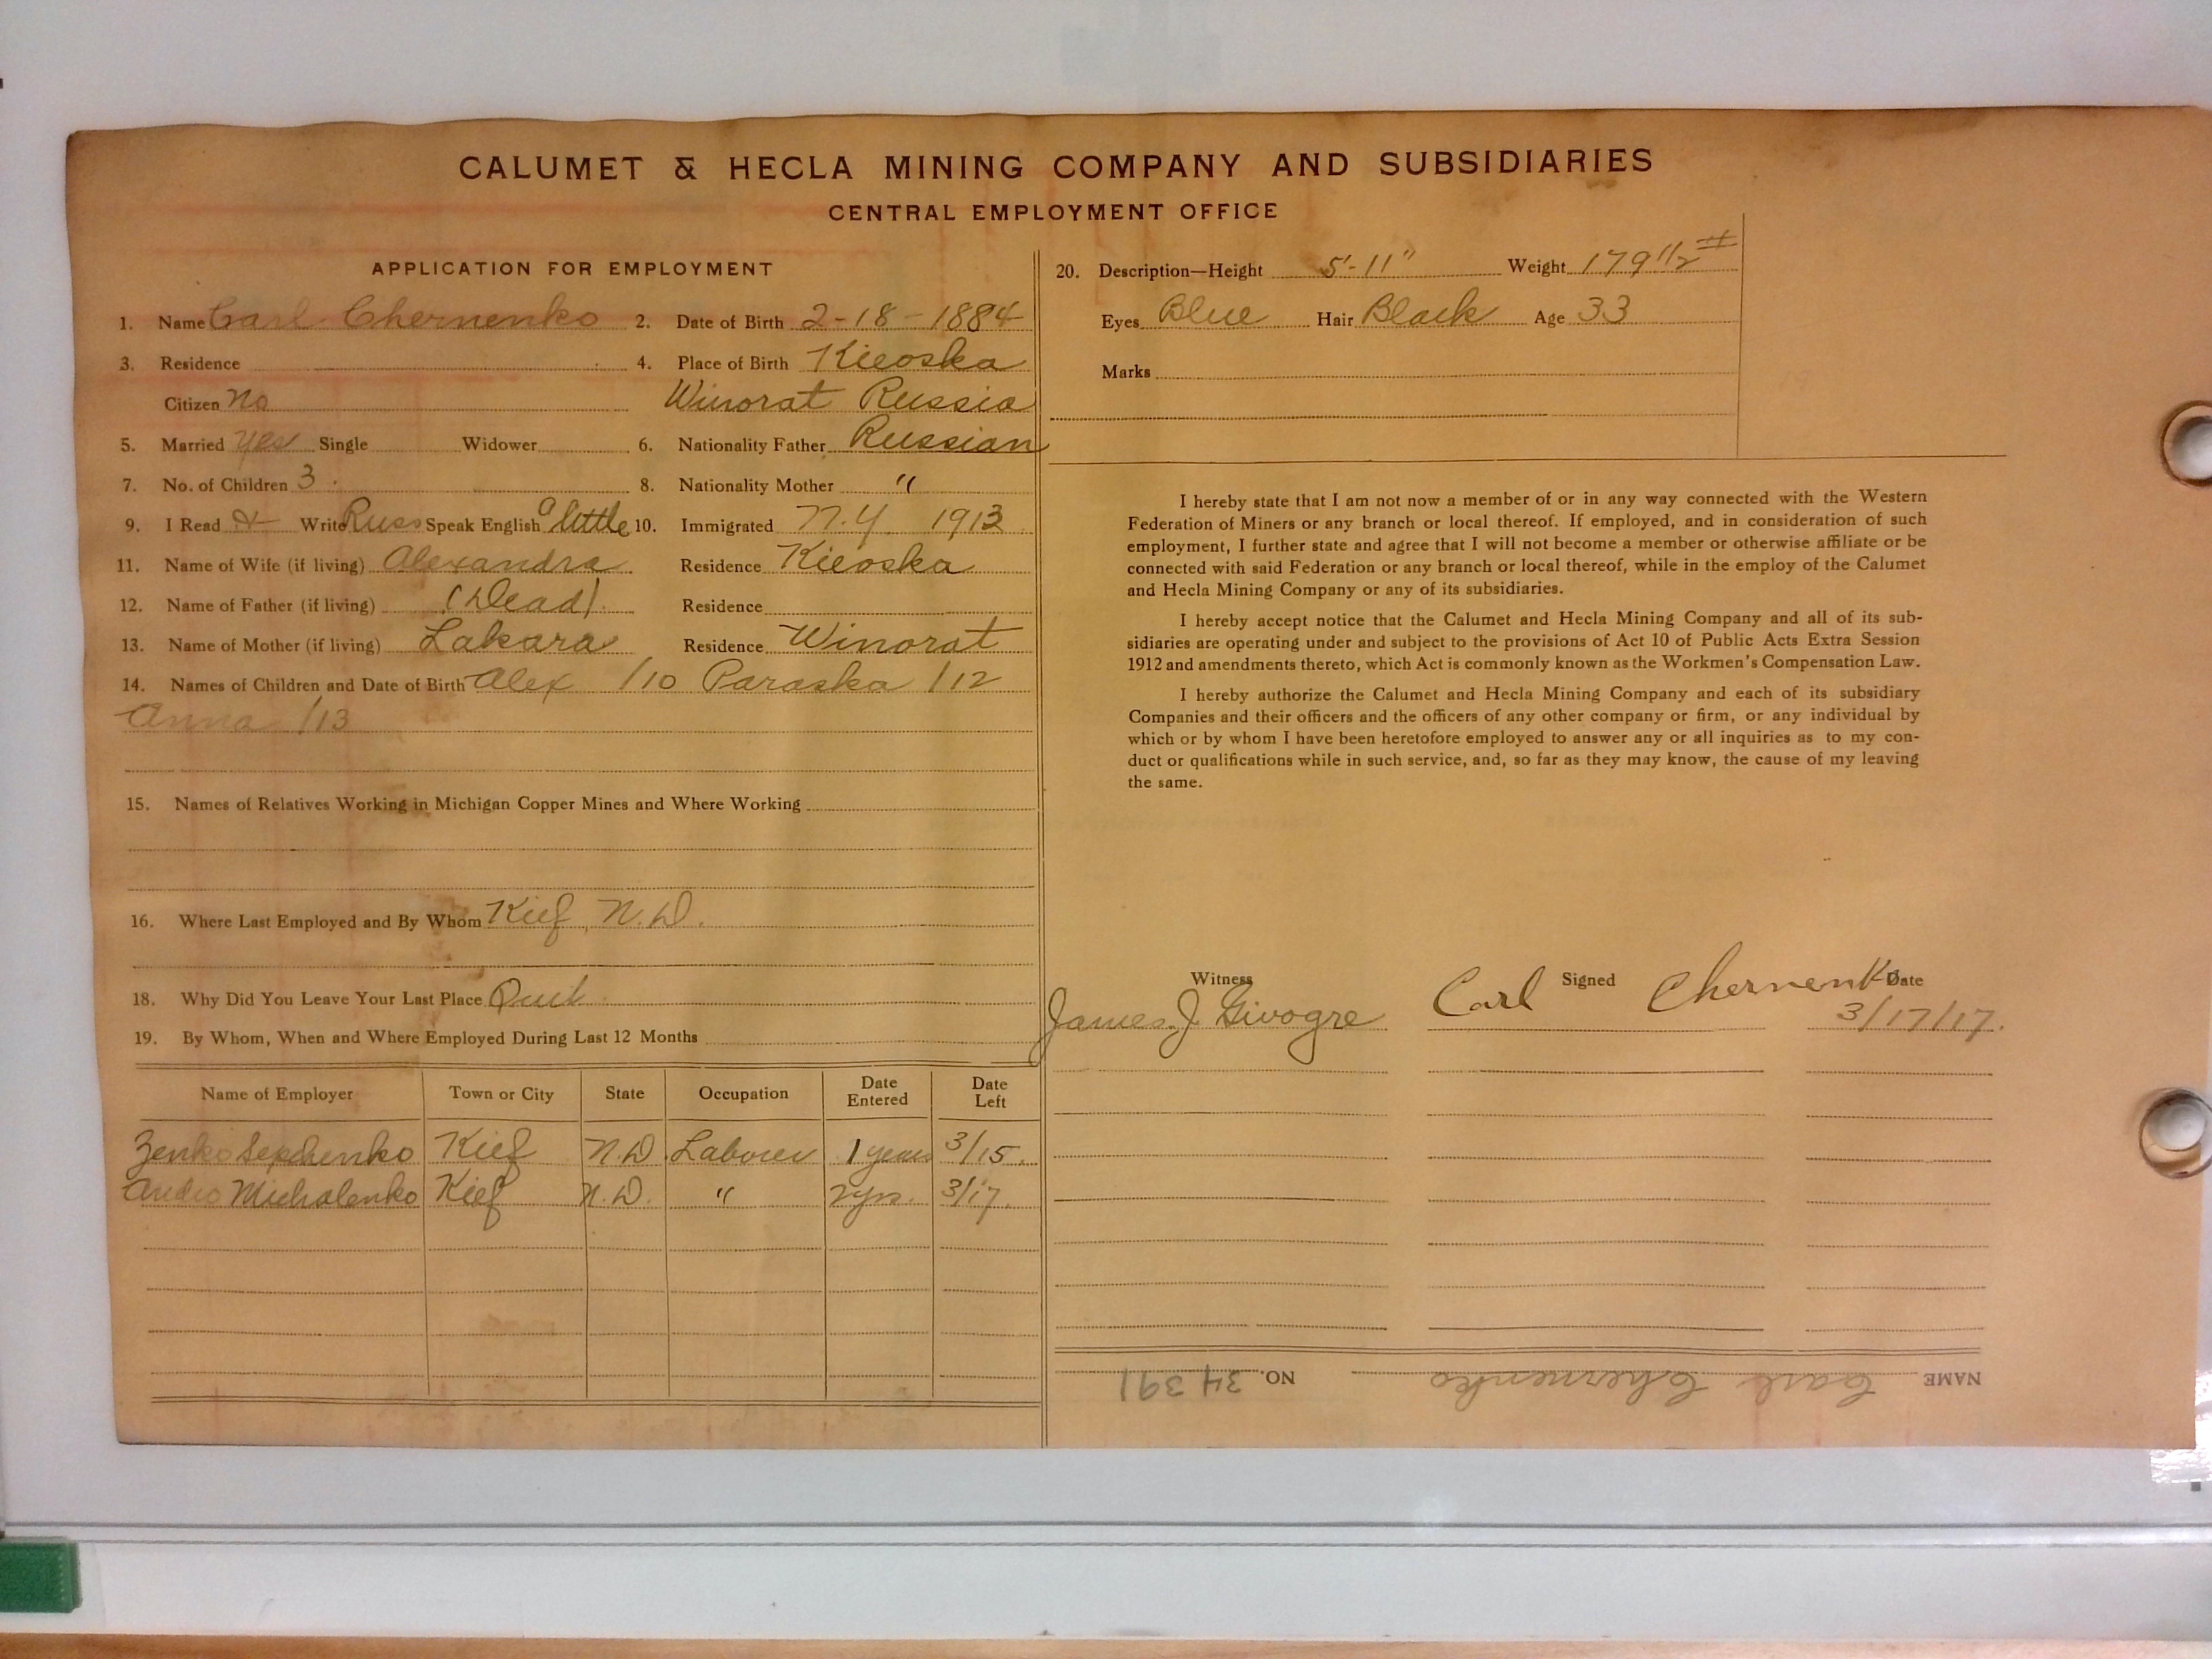 CALUMET & HECLA MINING COMPANY AND SUBSIDIARIES
CENTRAL EMPLOYMENT OFFICE
APPLICATION FOR EMPLOYMENT
1. Name Carl Chernenko 2. Date of Birth 2-18-1884
3. Residence 4. Place of Birth Kieoska
Citizen No Winorat Russia
5. Married Yes Single Widower 6. Nationality Father Russian
7. No. of Children 3 8. Nationality Mother "
9. I Read & Write Russ Speak English a little 10. Immigrated N.Y 1913
11. Name of Wife (if living) Alexandra Residence Kieoska
12. Name of Father (if living) (Dead) Residence
13. Name of Mother (if living) Lakara Residence Winorat
14. Names of Children and Date of Birth Alex /10 Paraska /12
Anna /13
15. Names of Relatives Working in Michigan Copper Mines and Where Working
16. Where Last Employed and By Whom Kief, N.D.
18. Why Did You Leave Your Last Place Quit
19. By Whom, When and Where Employed During Last 12 Months
Name of Employer Town or City State Occupation Date Entered Date Left
Zenko Kief N.D. Laborer 1 year 3/15.
Michalenko Kief N.D. " 2 yrs. 3/17.
20. Description—Height 5'-11" Weight 179 1/2 #
Eyes Blue Hair Black Age 33
Marks
I hereby state that I am not now a member of or in any way connected with the Western
Federation of Miners or any branch or local thereof. If employed, and in consideration of such
employment, I further state and agree that I will not become a member or otherwise affiliate or be
connected with said Federation or any branch or local thereof, while in the employ of the Calumet
and Hecla Mining Company or any of its subsidiaries.
I hereby accept notice that the Calumet and Hecla Mining Company and all of its sub-
sidiaries are operating under and subject to the provisions of Act 10 of Public Acts Extra Session
1912 and amendments thereto, which Act is commonly known as the Workmen's Compensation Law.
I hereby authorize the Calumet and Hecla Mining Company and each of its subsidiary
Companies and their officers and the officers of any other company or firm, or any individual by
which or by whom I have been heretofore employed to answer any or all inquiries as to my con-
duct or qualifications while in such service, and, so far as they may know, the cause of my leaving
the same.
Witness Signed Date
James J. Givogre Carl Chernenko 3/17/17.
NAME Carl Chernenko NO. 34391